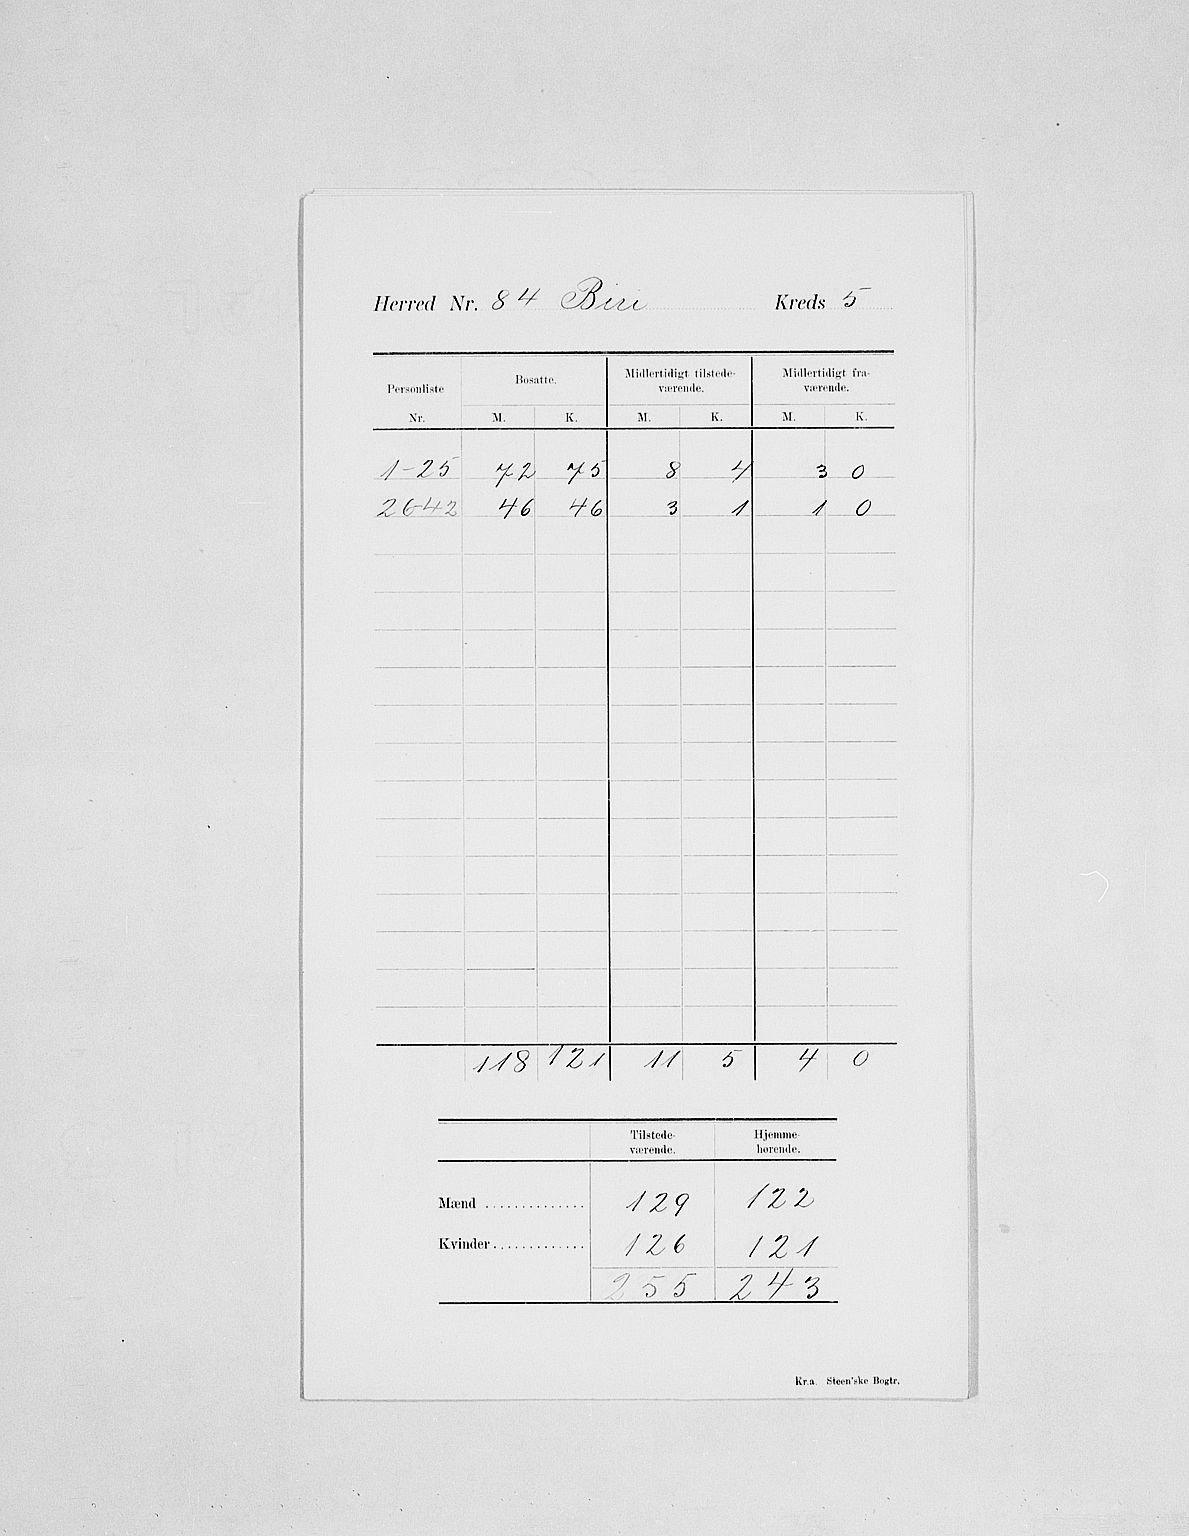 Herred Nr. 84 Biri Kreds 5
Personliste Nr. Bosatte. Midlertidigt tilstede-værende. Midlertidigt fra-værende.
M. K. M. K. M. K.
1-25 72 75 8 4 3 0
26-42 46 46 3 1 1 0
118 121 11 5 4 0
Tilstede-værende. Hjemme-hørende.
Mænd .............. 129 122
Kvinder............. 126 121
255 243
Kr.a. Steen'ske Bogtr.